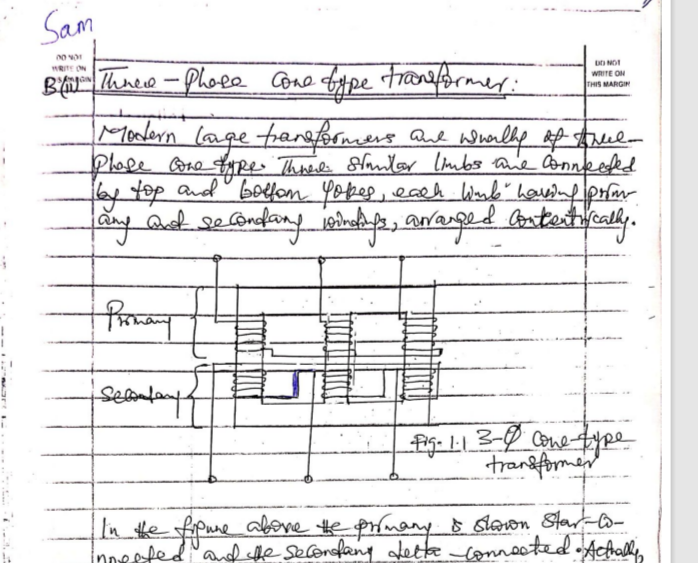 Sam
DO NOT
WRITE ON
THIS MARGIN
DO NOT
WRITE ON
THIS MARGIN
Three-Phase core type transformer:
Modern large transformers are usually of three-
Phase core type. Three similar limbs are connected
by top and bottom yokes, each limb having prim
ary and secondary windings, arranged concentrically.
Primary
Secondary
Fig-1.1 3-Ø core-type
transformer
In the figure above the primary is shown Star-Co-
nnected and the secondary delta-connected. Actually,